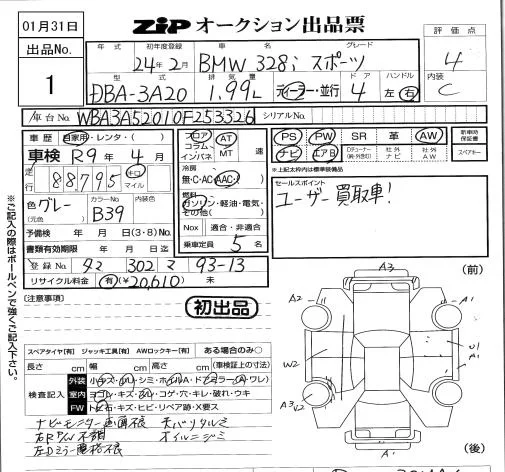 01月31日
出品No.
1
ZIP オークション出品票
評価点
4
内装
C
年式 初年度登録 車名 グレード
24年2月 BMW 328i スポーツ
型式 排気量 ドア ハンドル
DBA-3A20 1.99L ディーラー・並行 4 左・右
車台No. WBA3A52010F253326 シリアルNo.
車歴 自家用・レンタ・( )
車検 R9年4月
走行 88795 キロ マイル
色 グレー
(元色)
カラーNo B39
内装色
予備検 年 月 日(3・8)No.
書類有効期限 年 月 日迄
登録No. 302 93-13
リサイクル料金 有(¥20,610) 未
フロア
コラム
インパネ
AT
MT
速
冷房
無・C・AC・AAC
燃料
ガソリン・軽油・電気・
その他( )
Nox 適合・非適合
乗車定員 5名
PS PW SR 革 AW
ナビ エアB
社外
ナビ
社外
AW
新車時
保証書
スペアキー
※上記太枠内は標準装備品
セールスポイント
ユーザー買取車!
※ご記入の際はボールペンで強くご記入下さい。
[注意事項]
初出品
スペアタイヤ[有] ジャッキ工具[有] AWロックキー[有] ある場合のみ○
長さ cm 幅 cm 高さ cm (車検証上の寸法)
検査記入
外装
室内 ヨゴレ・キズ・スレ・コゲ・穴・キレ・破れ・ウキ
FW トビ石・キズ・ヒビ・リペア跡・X要ス
ナビモニター画面不良
右P/W不調
左Dミラー電格不良
オイルニジミ
(前)
A3
A2
A1
W2
U1
A1
A3
V2
A2
A1
(後)